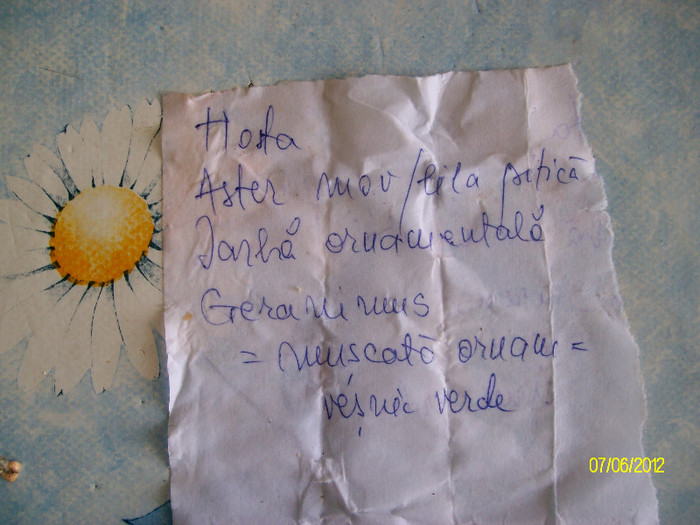 Hosta
Aster mov/lila pitică
Iarbă ornamentală
Geranimus
= muscată ornam =
veșnic verde
07/06/2012